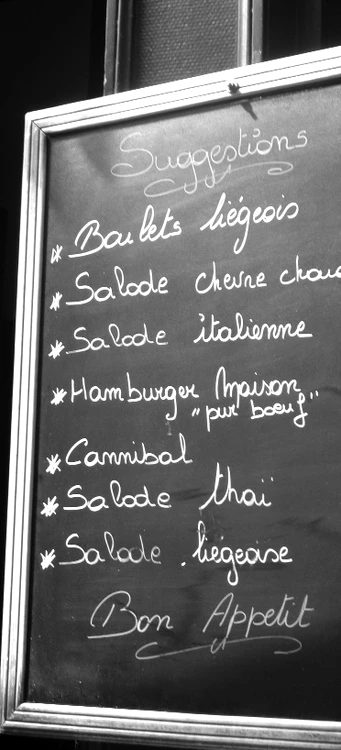 Suggestions
* Boulets liégeois
* Salade chèvre chaud
* Salade italienne
* Hamburger Maison
"pur boeuf"
* Cannibal
* Salade thaï
* Salade liégeoise
Bon Appetit